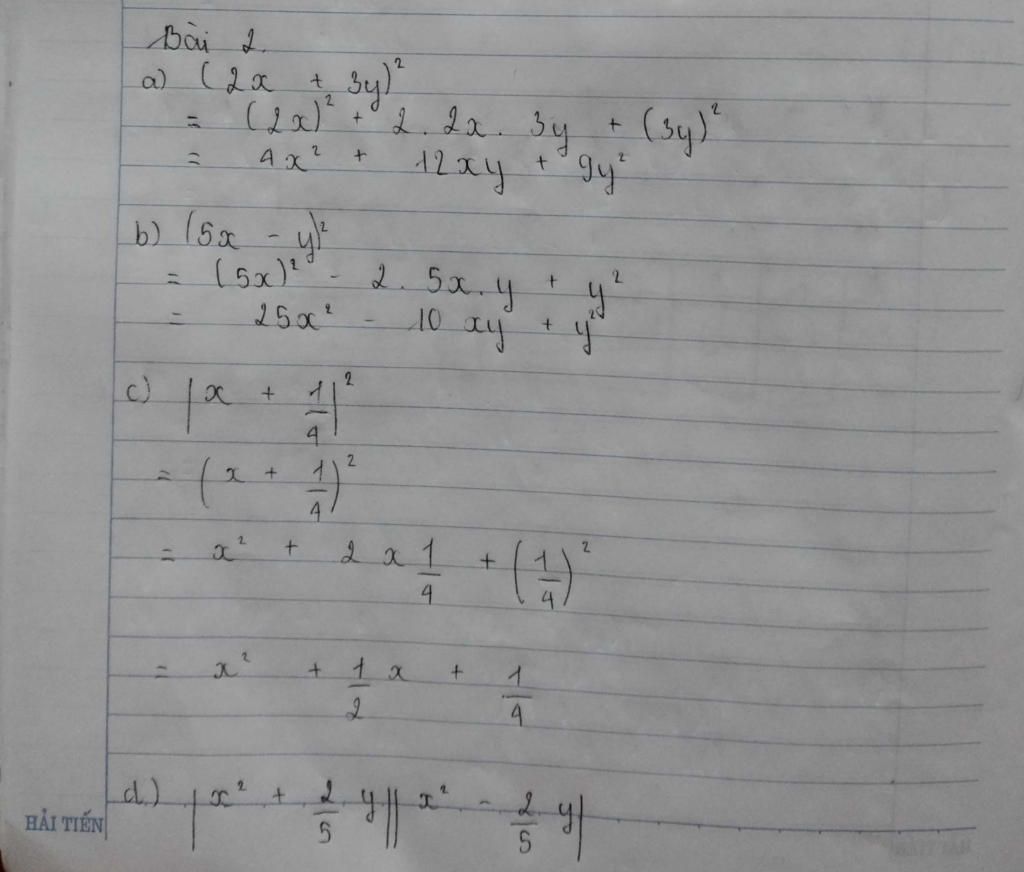 Bài 2.
a) (2x + 3y)²
= (2x)² + 2 . 2x . 3y + (3y)²
= 4x² + 12xy + 9y²
b) (5x - y)²
= (5x)² - 2 . 5x . y + y²
= 25x² - 10 xy + y²
c) |x + 1/4|²
= (x + 1/4)²
= x² + 2 x 1/4 + (1/4)²
= x² + 1/2 x + 1/4
d.) |x² + 2/5 y||x² - 2/5 y|
HẢI TIẾN